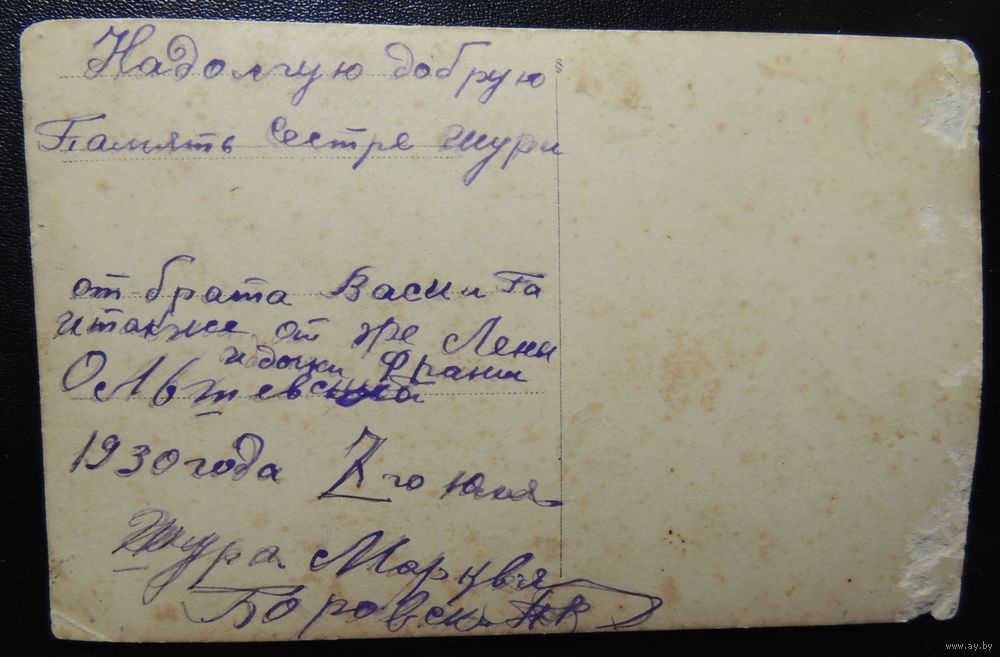 Надолгую добрую
Память Сестре Шури
от брата Васи и Га
и также от же Лены
и дочки Франи
Ольшевской
1930 года го юня
Шура Марквя
Боровск
www.ay.by